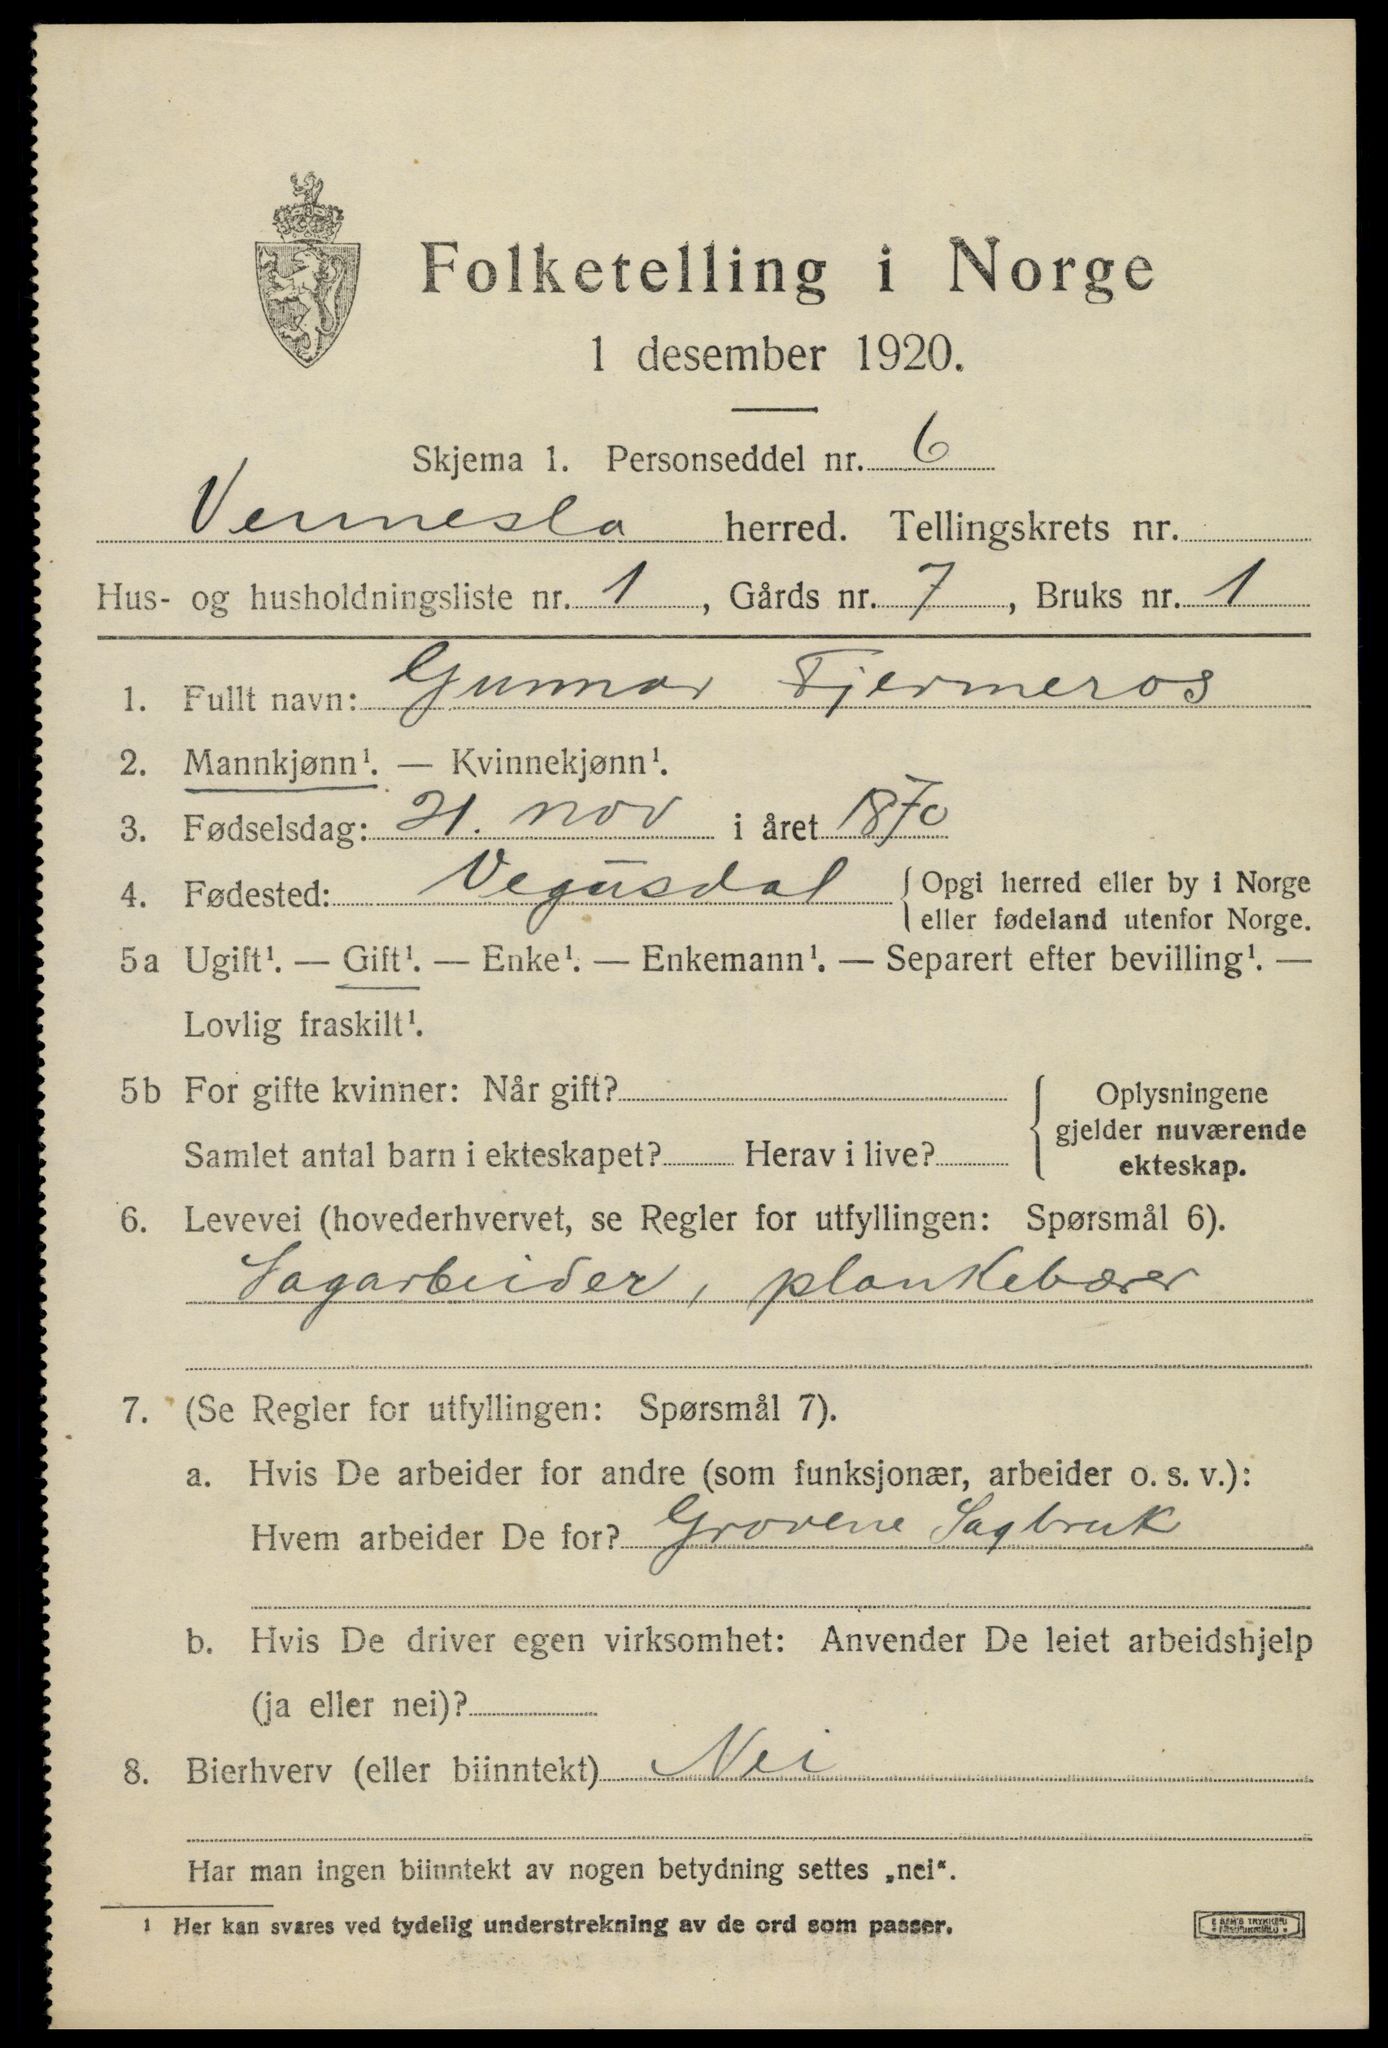 Folketelling i Norge
1 desember 1920.
Skjema 1. Personseddel nr. 6
Vennesla herred. Tellingskrets nr.
Hus- og husholdningsliste nr. 1, Gårds nr. 7, Bruks nr. 1
1. Fullt navn: Gunnar Fjermeros
2. Mannkjønn¹. — Kvinnekjønn¹.
3. Fødselsdag: 21. nov i året 1870
4. Fødested: Vegusdal { Opgi herred eller by i Norge
eller fødeland utenfor Norge.
5a Ugift¹. — Gift¹. — Enke¹. — Enkemann¹. — Separert efter bevilling¹. —
Lovlig fraskilt¹.
5b For gifte kvinner: Når gift? { Oplysningene
gjelder nuværende
Samlet antal barn i ekteskapet? Herav i live? ekteskap.
6. Levevei (hovederhvervet, se Regler for utfyllingen: Spørsmål 6).
Sagarbeider, plankebærer
7. (Se Regler for utfyllingen: Spørsmål 7).
a. Hvis De arbeider for andre (som funksjonær, arbeider o. s. v.):
Hvem arbeider De for? Grovene Sagbruk
b. Hvis De driver egen virksomhet: Anvender De leiet arbeidshjelp
(ja eller nei)?
8. Bierhverv (eller biinntekt) Nei
Har man ingen biinntekt av nogen betydning settes „nei“.
¹ Her kan svares ved tydelig understrekning av de ord som passer.